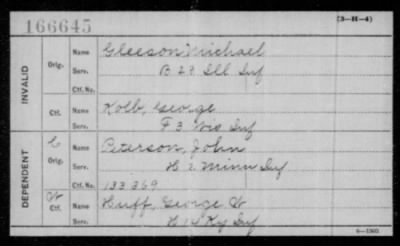 166645
(3-H-4)
INVALID
Orig.
Name Gleeson Michael
Serv. B 29 Ill Inf
Ctf. No.
Ctf.
Name Kolb, George
Serv. F 3 Wis Inf
DEPENDENT
C
Orig.
Name Peterson, John
Serv. H 2 Minn Inf
Ctf. No. 133 369
W
Ctf.
Name Huff, George W
Serv. H 14 Ky Inf